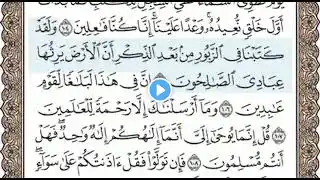 أَوَّلَ خَلْقٍ نُّعِيدُهُۥ وَعْدًا عَلَيْنَآ إِنَّا كُنَّا فَٰعِلِينَ ١٠٤ وَلَقَدْ
كَتَبْنَا فِى ٱلزَّبُورِ مِنۢ بَعْدِ ٱلذِّكْرِ أَنَّ ٱلْأَرْضَ يَرِثُهَا
عِبَادِىَ ٱلصَّٰلِحُونَ ١٠٥ إِنَّ فِى هَٰذَا لَبَلَٰغًا لِّقَوْمٍ
عَٰبِدِينَ ١٠٦ وَمَآ أَرْسَلْنَٰكَ إِلَّا رَحْمَةً لِّلْعَٰلَمِينَ
١٠٧ قُلْ إِنَّمَا يُوحَىٰٓ إِلَىَّ أَنَّمَآ إِلَٰهُكُمْ إِلَٰهٌ وَٰحِدٌ فَهَلْ
أَنتُم مُّسْلِمُونَ ١٠٨ فَإِن تَوَلَّوْا۟ فَقُلْ ءَاذَنتُكُمْ عَلَىٰ سَوَآءٍ